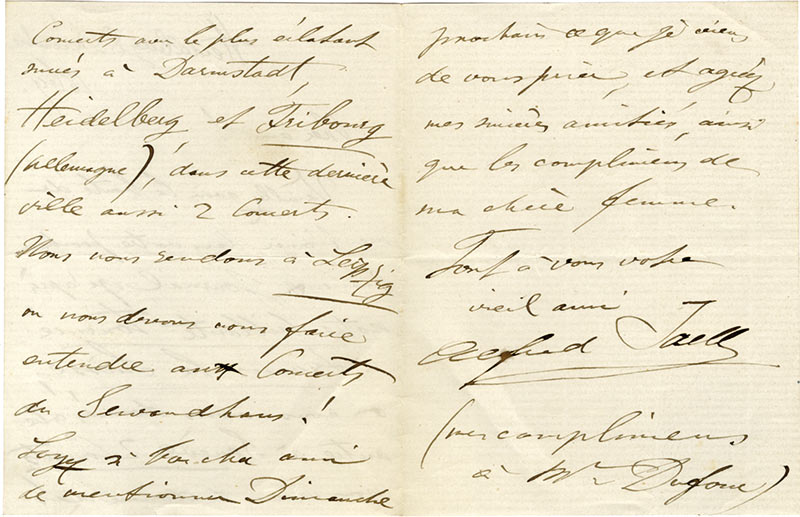 Concerts avec le plus éclatant
succès à Darmstadt,
Heidelberg et Fribourg
(Allemagne), dans cette dernière
ville aussi 2 Concerts.
Nous nous rendons à Leipzig
ou nous devons nous faire
entendre aux Concerts
du Gewandhaus!
Soyez si bon cher ami
de mentionner Dimanche
prochain ce que je viens
de vous prier, et agréez
mes sincères amitiés, ainsi
que les complimens de
ma chère femme.
Tout à vous votre
vieil ami
Alfred Jaell
(mes complimens
à Mr Dufour)